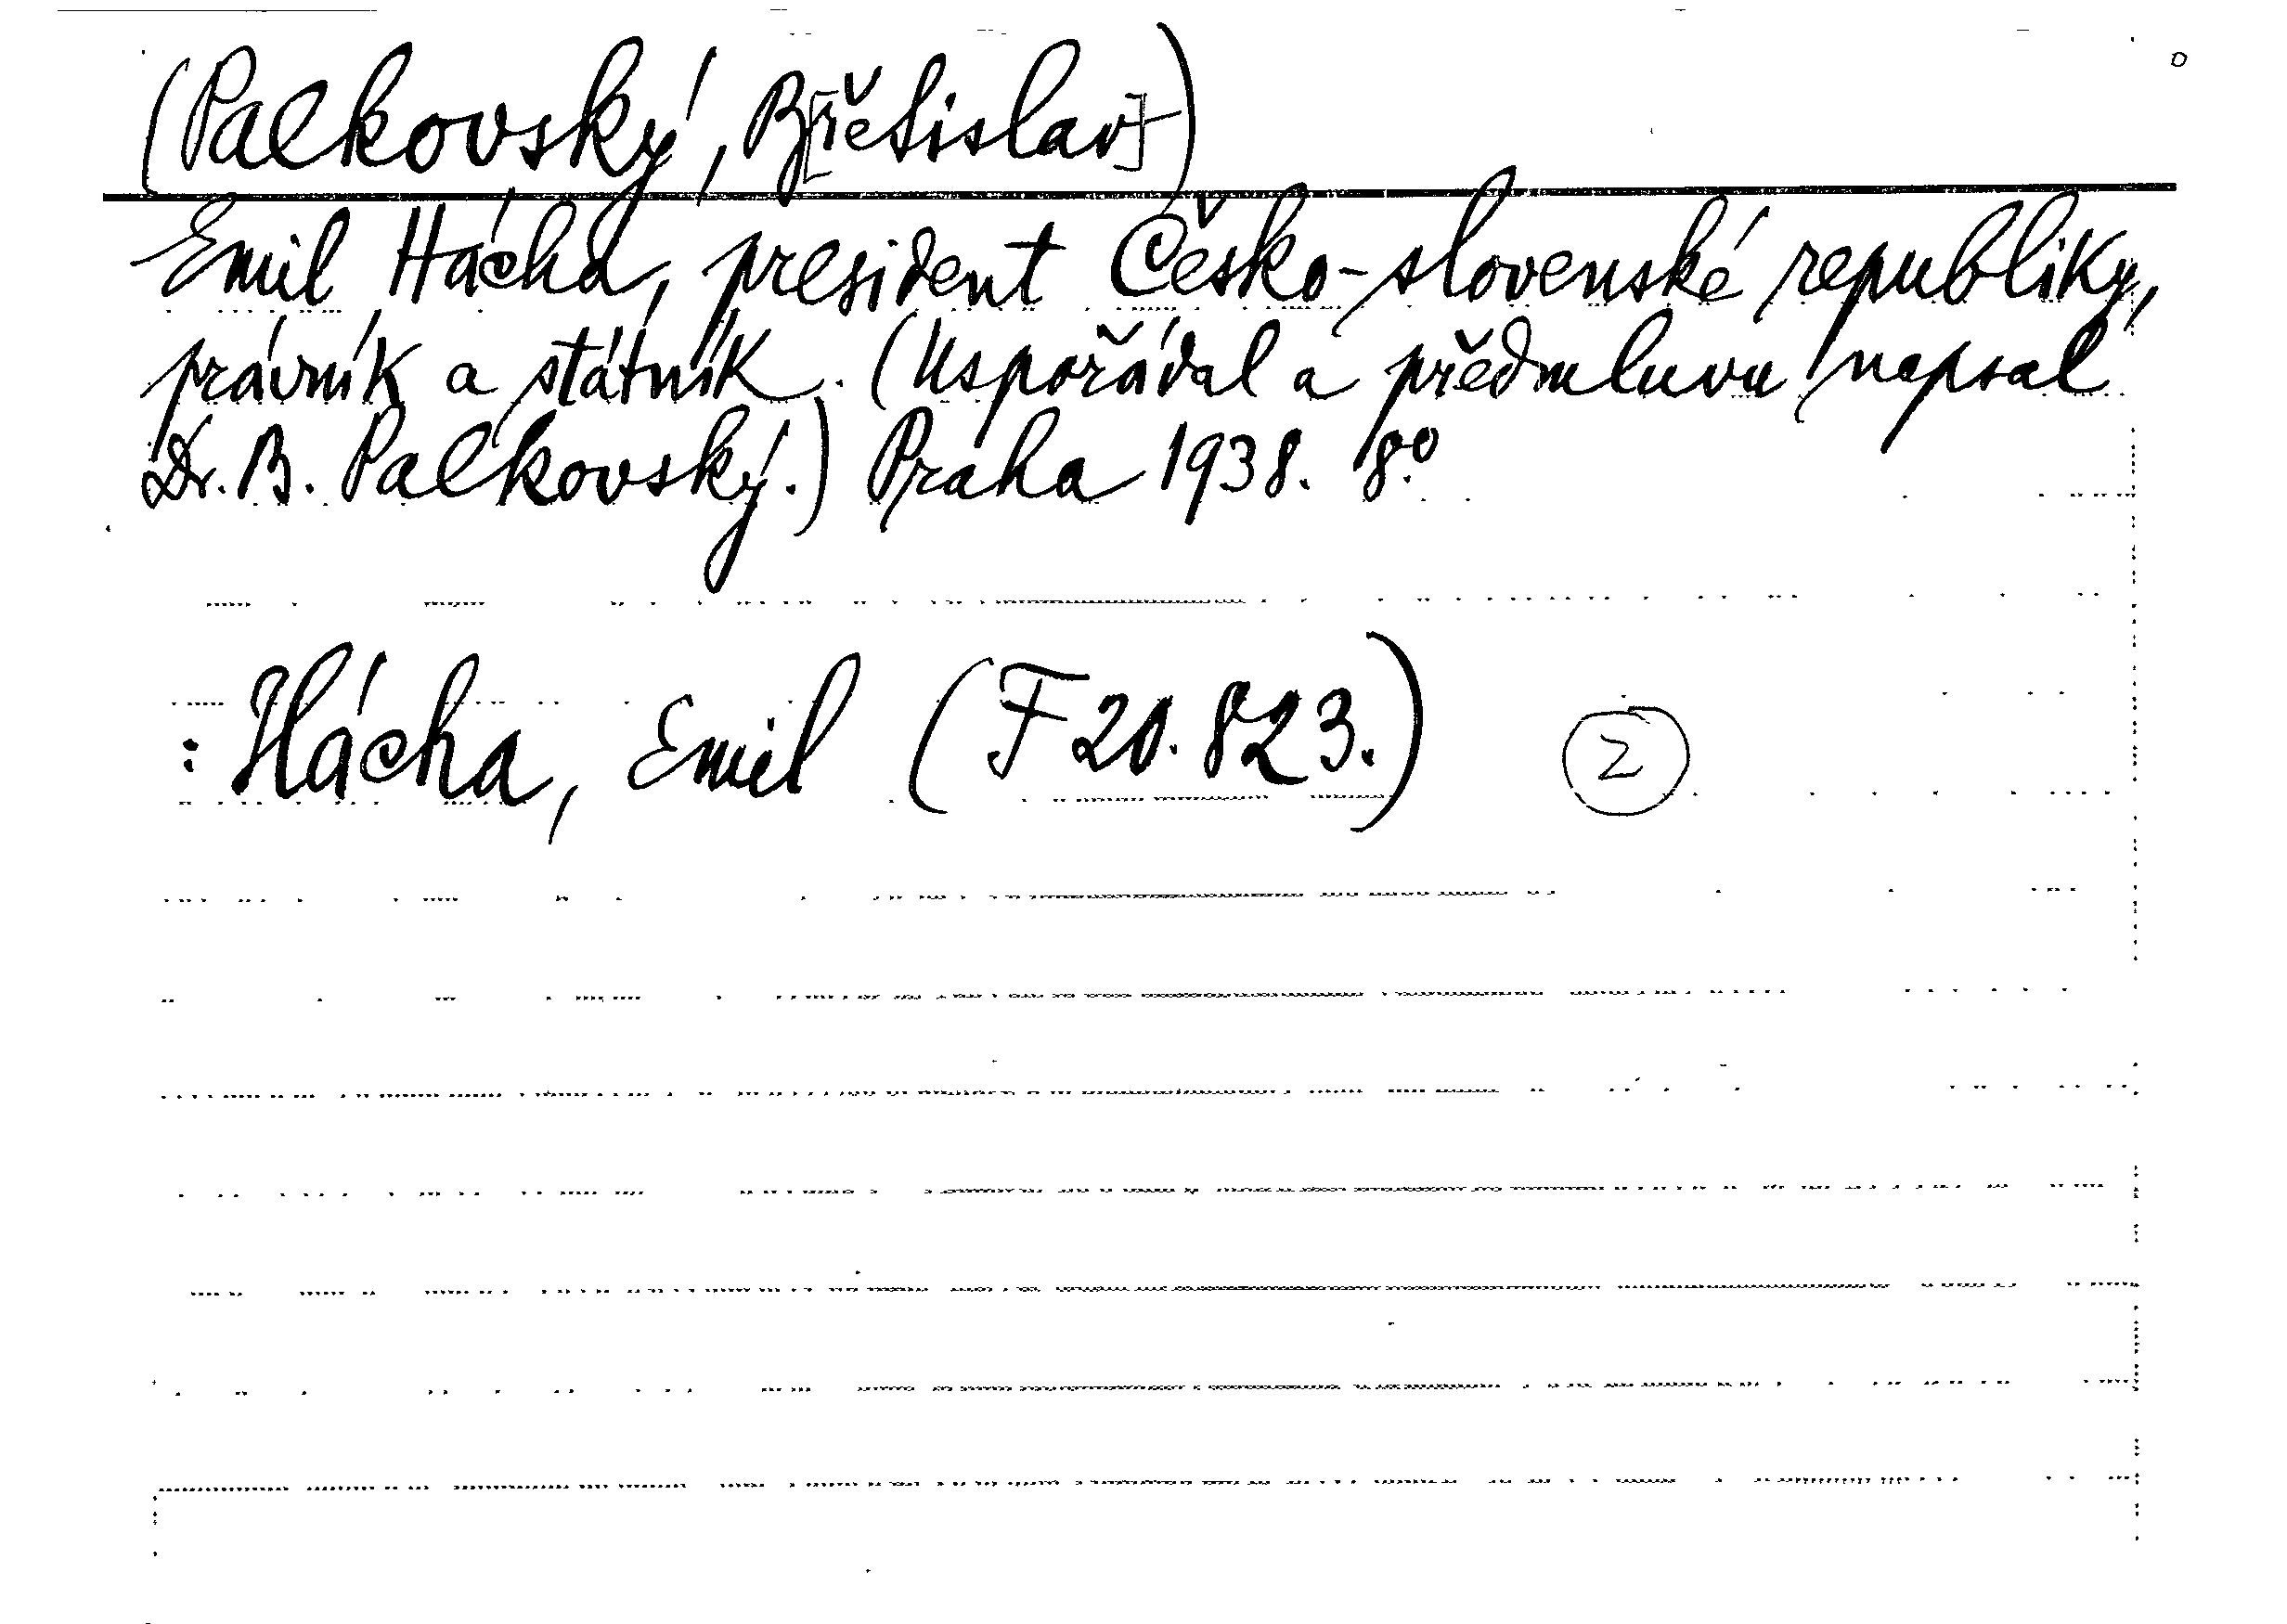 (Palkovský, B[řetislav])
Emil Hácha, president Česko-slovenské republiky,
právník a státník. (Uspořádal a předmluvu napsal
Dr. B. Palkovský.) Praha 1938. 8.º
: Hácha, Emil (F 20.823.) 2